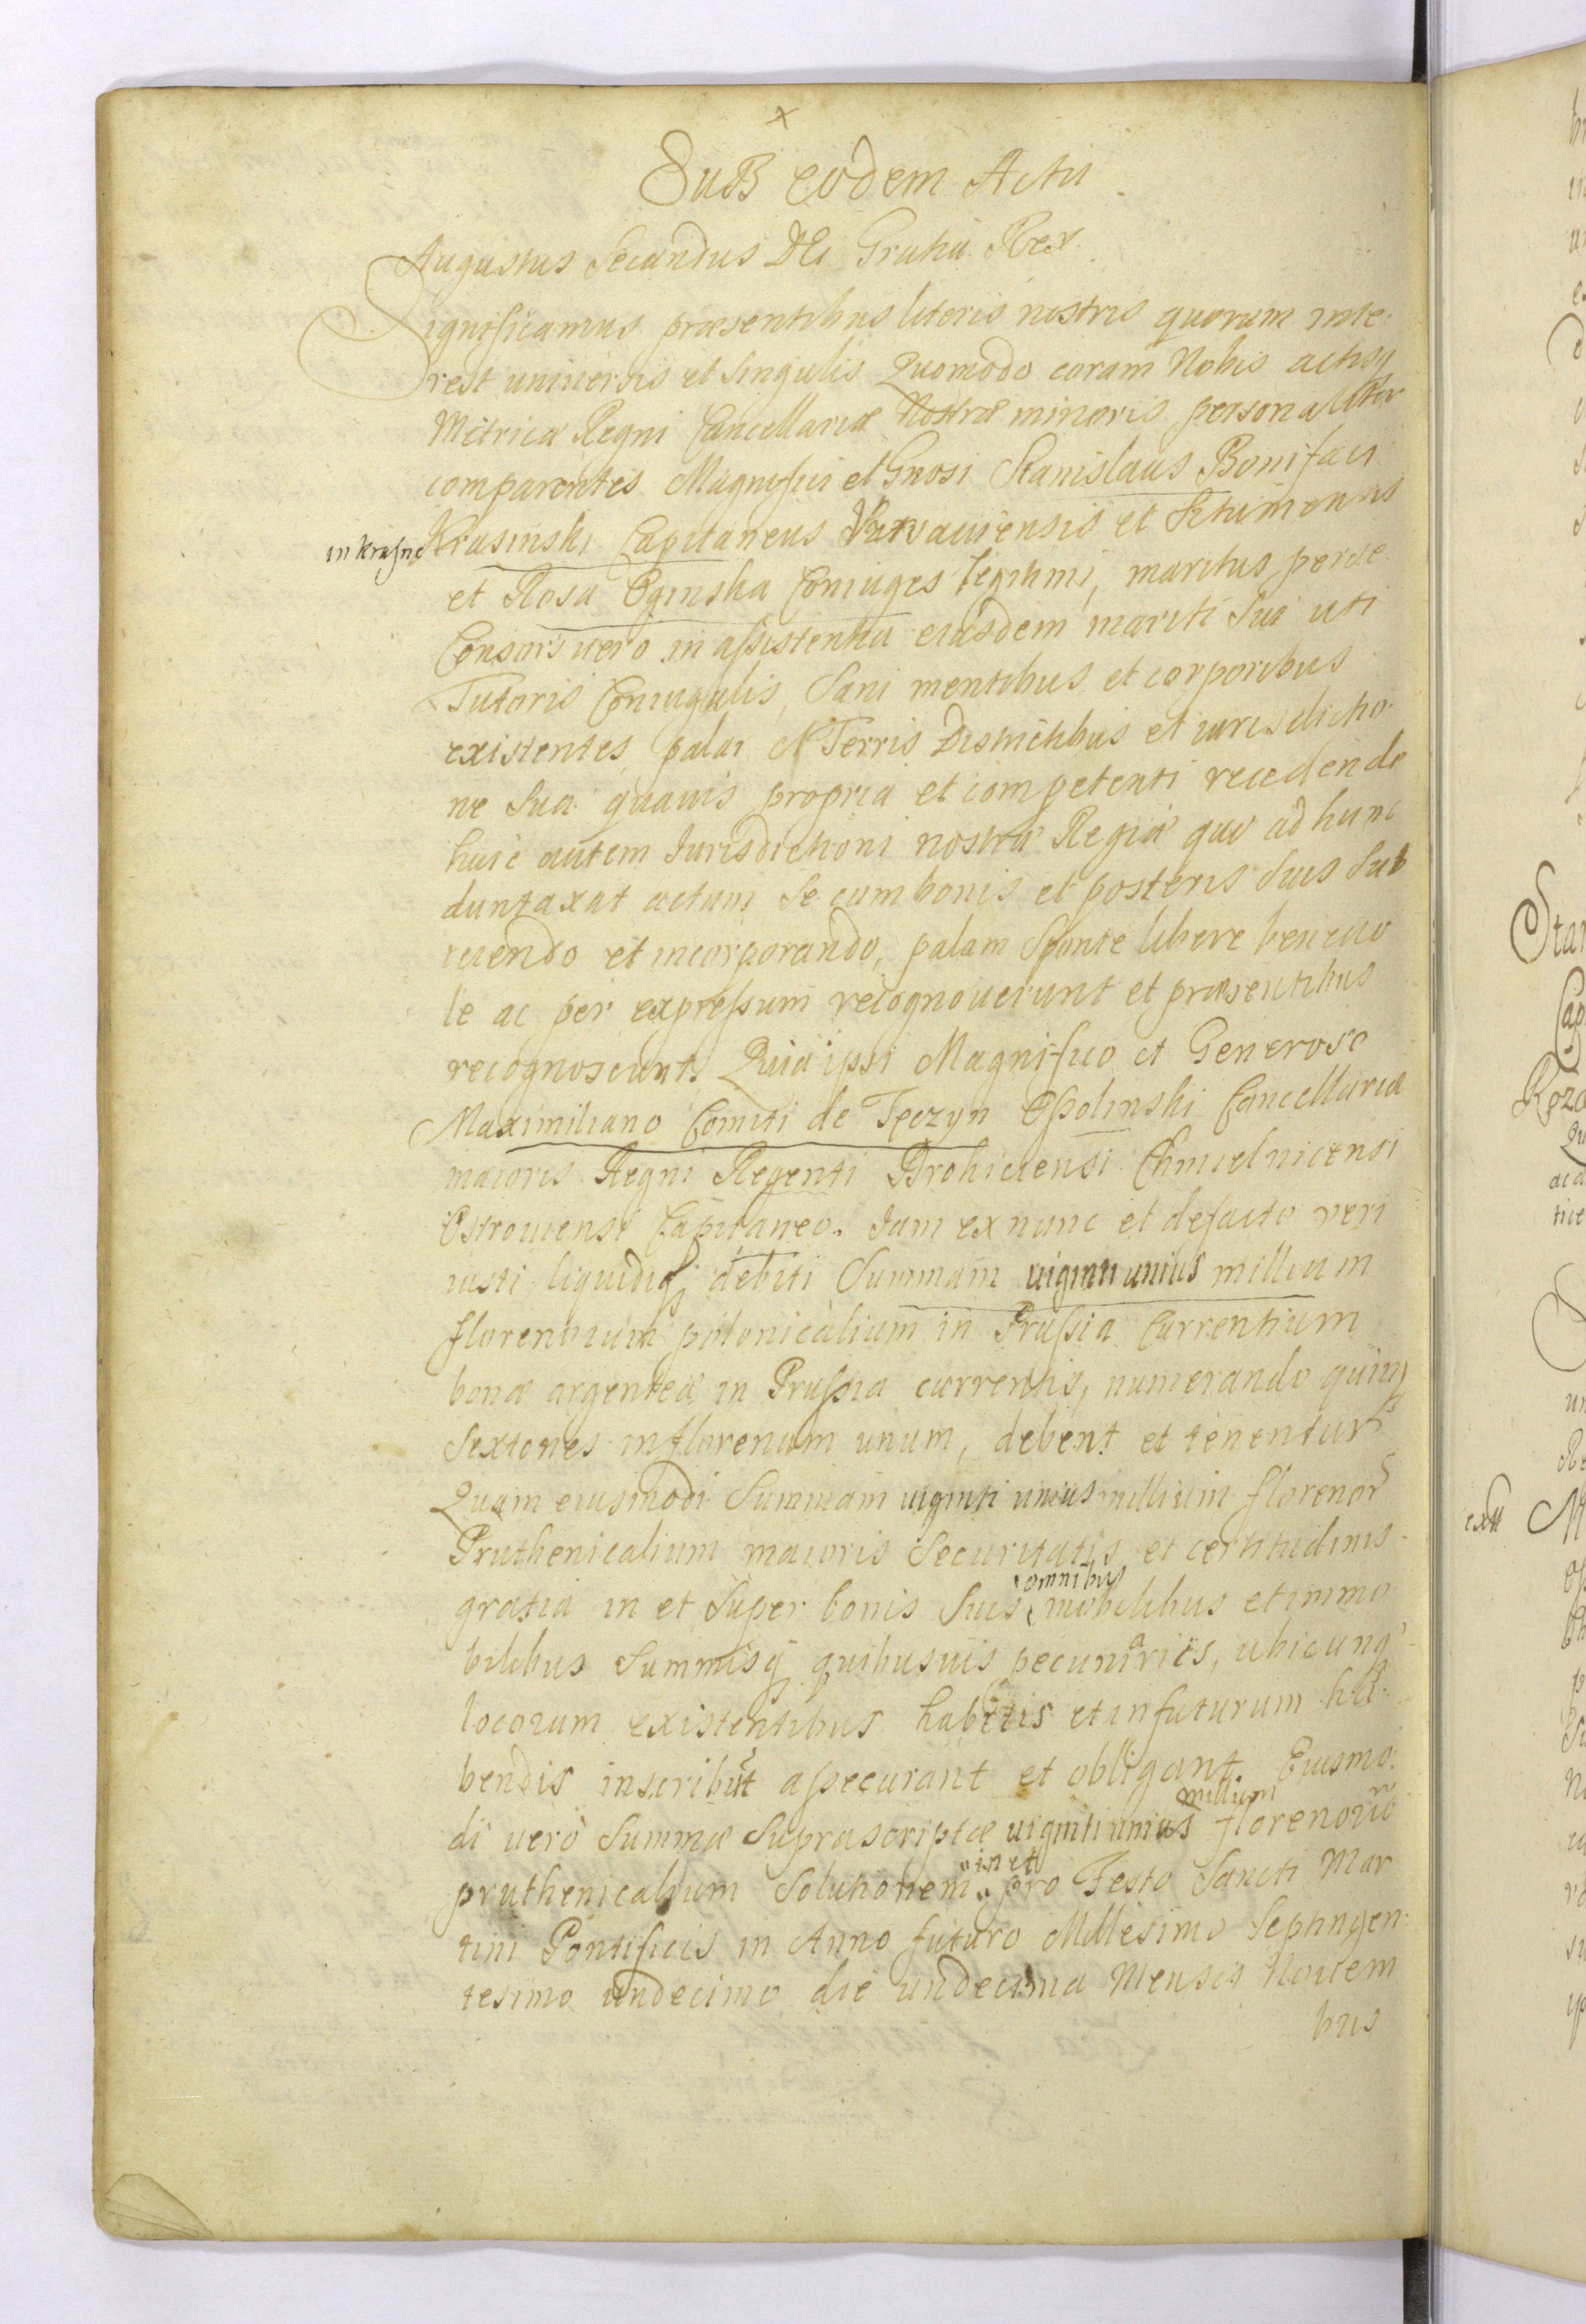 Sub eodem Actu
Augustus Secundus DEi Gratia Rex.
Significamus præsentibus literis nostris quorum inte-
rest universis et singulis Quomodo coram Nobis actisq
Metricæ Regni Cancellariæ Nostræ minoris personaliter
comparentes Magnifici et Gnosi Stanislaus Bonifaci
in Krasne Krasinski Capitaneus Varsaviensis et
et Rosa Oginska Coniuges legitimi, maritus per se
Consors uero in assistentia eiusdem mariti sui uti
Tutoris Coniugalis, Sani mentibus et corporibus
existentes, palat Terris Districtibus et iurisdictio-
ne sua quauis propria et competenti recedendo
huic autem Jurisdictioni nostræ Regiæ quo ad hunc
duntaxat actum Se cum bonis et posteris suis Sub
iiciendo et incorporando, palam Sponte libere beneuo
le ac per expressum recognouerunt et præsentibus
recognoscunt. Quia ipsi Magnifico et Generoso
Maximiliano Comiti de Teczyn Ossolinski Cancellariæ
maioris Regni Regenti Drohiciensi Chmielnicensi
Ostroviensi Capitaneo. Jam ex nunc et de facto veri
iusti liquidiq debiti Summam uiginti unius millium
florenorum polonicalium in Prussia Currentium
bonæ argenteæ in Prussia currentis, numerando quinq
Sextones in florenum unum, debent et tenentur
Quam eiusmodi Summam uiginti unius millium florenor
Pruthenicalium maioris Securitatis et certitudinis
gratia in et Super bonis Suis omnibus mobilibus et immo
bilibus Summisq quibusuis pecuniariis, ubicunq
locorum existentibus habitis et in futurum ha-
bendis inscribut assecurant et obligant. Eiusmo-
di uerò Summæ Suprascriptæ uiginti unius millium florenorū
pruthenicalium Solutionem in et pro Festo Sancti Mar
tini Pontificis in Anno futuro Millesimo Septingen-
tesimo undecimo die undecima Mensis Novem
bris